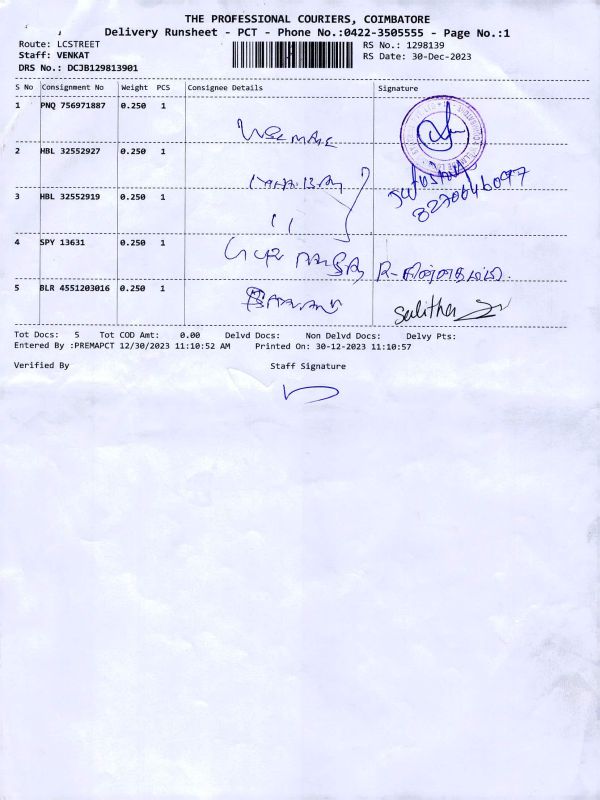 THE PROFESSIONAL COURIERS, COIMBATORE
Delivery Runsheet - PCT - Phone No.:0422-3505555 - Page No.:1
Route: LCSTREET
Staff: VENKAT
DRS No.: DCJB129813901
RS No.: 1298139
RS Date: 30-Dec-2023
S No Consignment No Weight PCS Consignee Details Signature
1 PNQ 756971887 0.250 1
2 HBL 32552927 0.250 1
3 HBL 32552919 0.250 1
4 SPY 13631 0.250 1
5 BLR 4551203016 0.250 1
Tot Docs: 5 Tot COD Amt: 0.00 Delvd Docs: Non Delvd Docs: Delvy Pts:
Entered By :PREMAPCT 12/30/2023 11:10:52 AM Printed On: 30-12-2023 11:10:57
Verified By Staff Signature